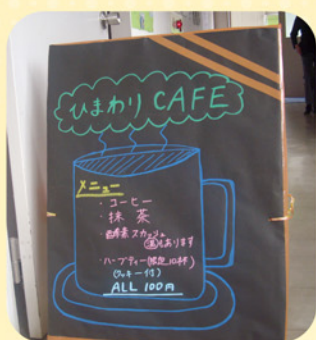 ひまわり CAFE
メニュー
・コーヒー
・抹茶
・酵素スカッシュ
温もあります
・ハーブティー(限定10杯)
(クッキー付)
ALL 100円